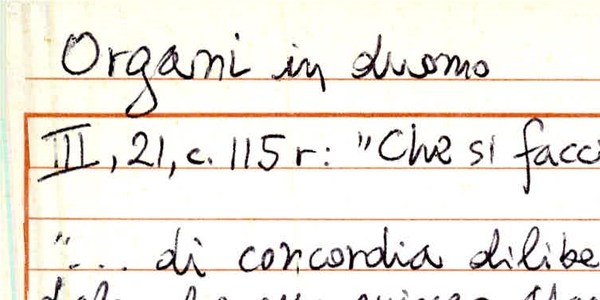 Organi in duomo
III, 21, c. 115 r: "Che si facci
"... di concordia dilibe